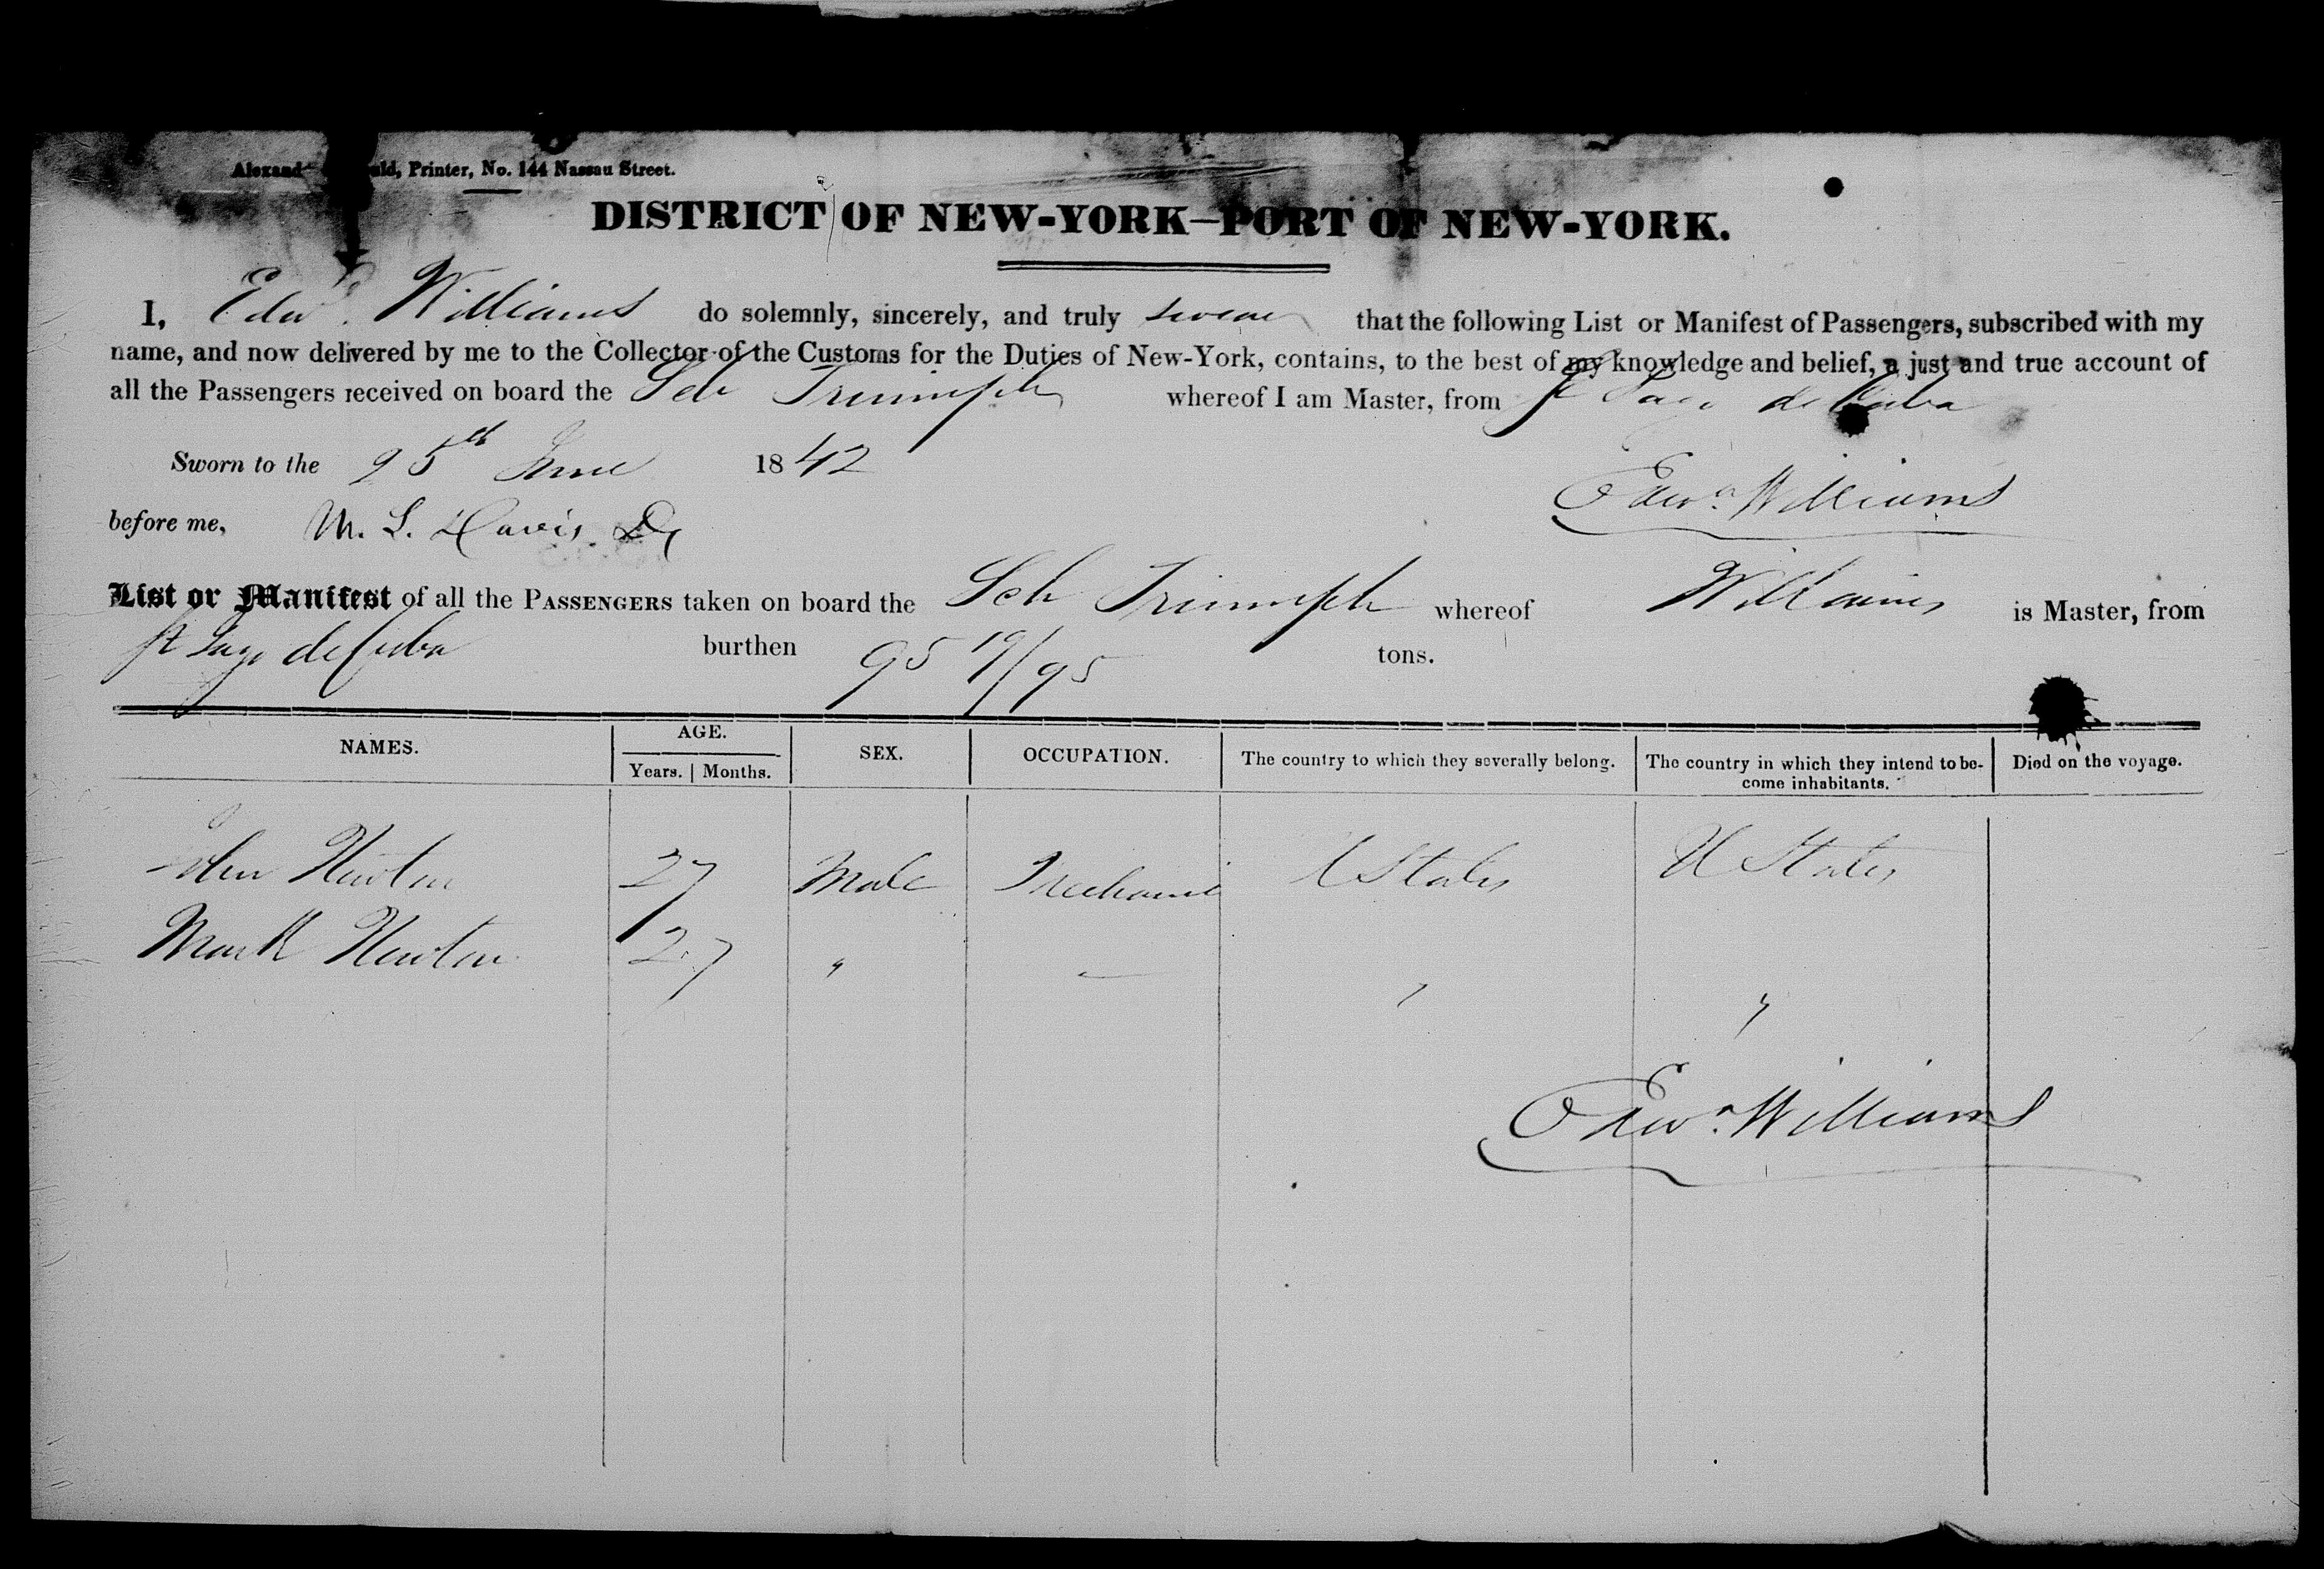 Alexand ald, Printer, No. 144 Nassau Street.
DISTRICT OF NEW-YORK—PORT OF NEW-YORK.
I, Edwd. Williams do solemnly, sincerely, and truly swear that the following List or Manifest of Passengers, subscribed with my
name, and now delivered by me to the Collector of the Customs for the Duties of New-York, contains, to the best of my knowledge and belief, a just and true account of
all the Passengers received on board the Sch Triumph whereof I am Master, from St Jago de Cuba
Sworn to the 25th June 1842
Edwd. Williams
before me, M. L. Davis
List or Manifest of all the PASSENGERS taken on board the Sch Triumph whereof Williams is Master, from
St Jago de Cuba burthen 95 19/95 tons.
NAMES. AGE. SEX. OCCUPATION. The country to which they severally belong. The country in which they intend to be- Died on the voyage.
Years. | Months. come inhabitants.
John Newton 27 Male Mechanic U States U States
Mark Newton 27 " — " "
Edwd. Williams